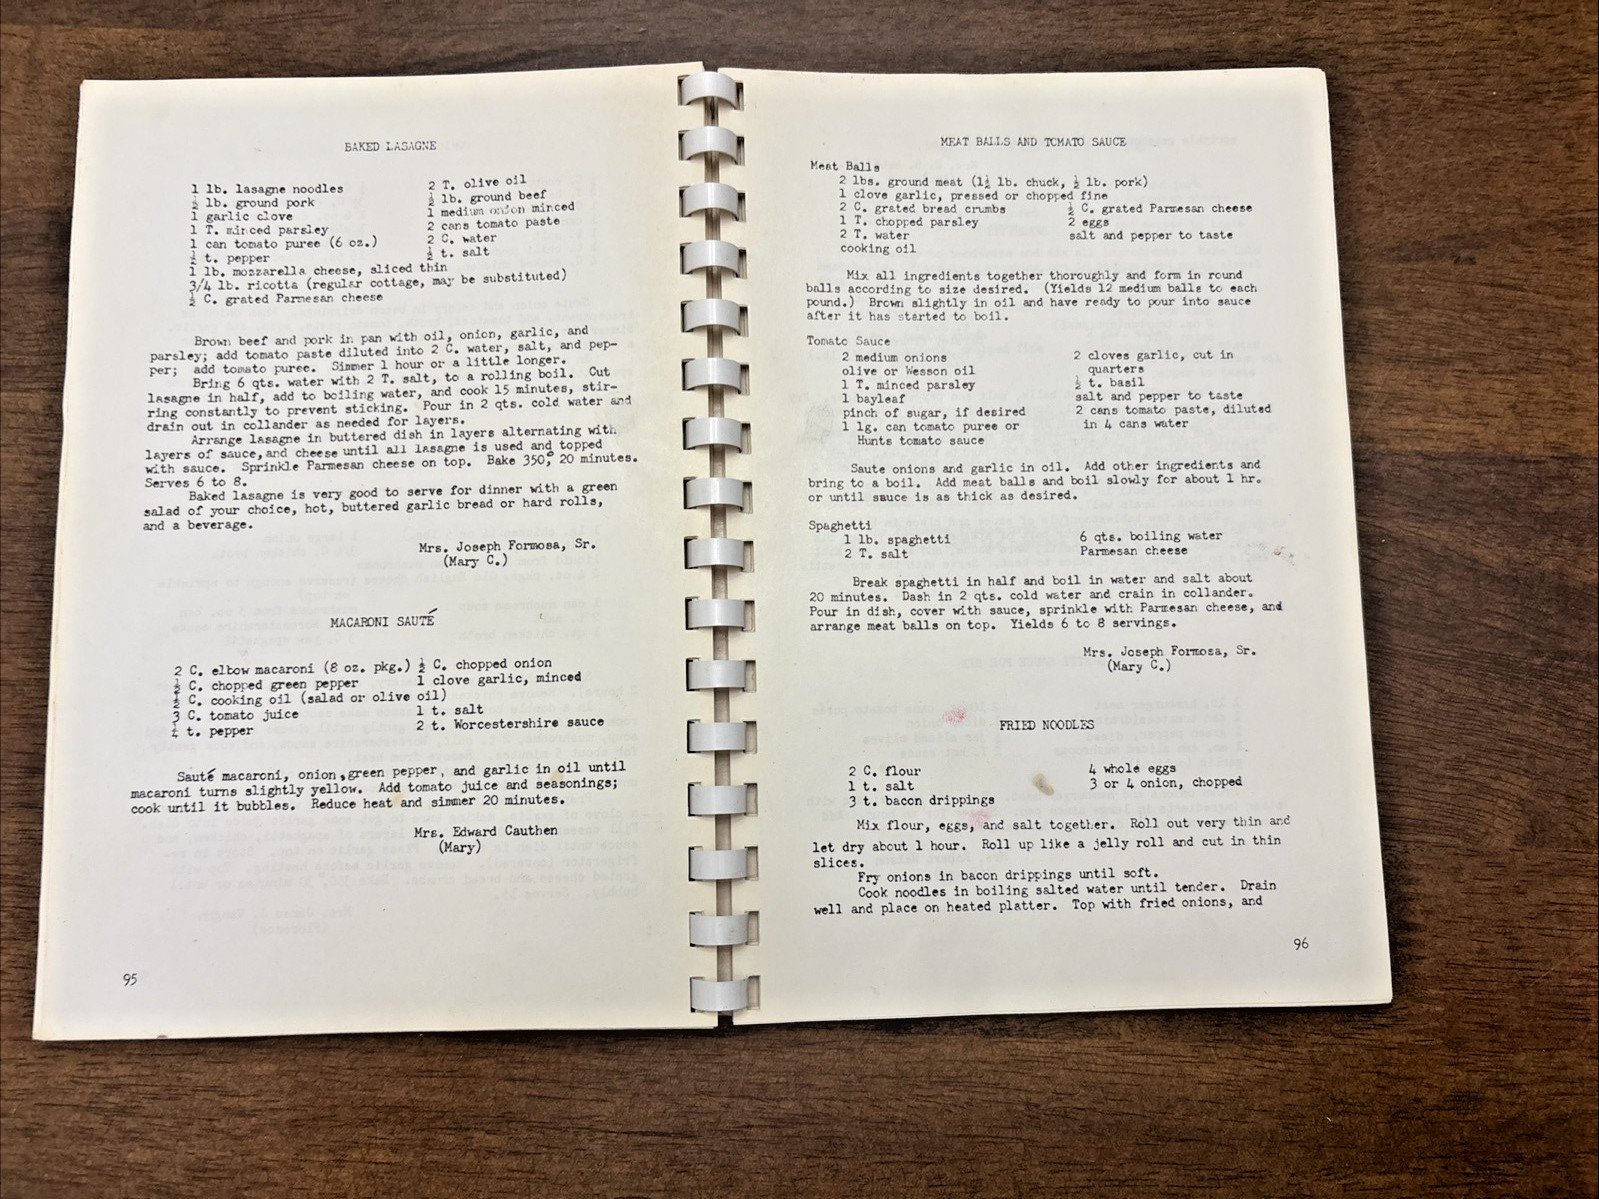 BAKED LASAGNE
1 lb. lasagne noodles 2 T. olive oil
½ lb. ground pork ½ lb. ground beef
1 garlic clove 1 medium onion minced
1 T. minced parsley 2 cans tomato paste
1 can tomato puree (6 oz.) 2 C. water
½ t. pepper ½ t. salt
1 lb. mozzarella cheese, sliced thin
3/4 lb. ricotta (regular cottage, may be substituted)
½ C. grated Parmesan cheese
Brown beef and pork in pan with oil, onion, garlic, and
parsley; add tomato paste diluted into 2 C. water, salt, and pep-
per; add tomato puree. Simmer 1 hour or a little longer.
Bring 6 qts. water with 2 T. salt, to a rolling boil. Cut
lasagne in half, add to boiling water, and cook 15 minutes, stir-
ring constantly to prevent sticking. Pour in 2 qts. cold water and
drain out in collander as needed for layers.
Arrange lasagne in buttered dish in layers alternating with
layers of sauce, and cheese until all lasagne is used and topped
with sauce. Sprinkle Parmesan cheese on top. Bake 350°, 20 minutes.
Serves 6 to 8.
Baked lasagne is very good to serve for dinner with a green
salad of your choice, hot, buttered garlic bread or hard rolls,
and a beverage.
Mrs. Joseph Formosa, Sr.
(Mary C.)
MACARONI SAUTÉ
2 C. elbow macaroni (8 oz. pkg.) ½ C. chopped onion
½ C. chopped green pepper 1 clove garlic, minced
½ C. cooking oil (salad or olive oil)
3 C. tomato juice 1 t. salt
t. pepper 2 t. Worcestershire sauce
Sauté macaroni, onion, green pepper, and garlic in oil until
macaroni turns slightly yellow. Add tomato juice and seasonings;
cook until it bubbles. Reduce heat and simmer 20 minutes.
Mrs. Edward Cauthen
(Mary)
95
MEAT BALLS AND TOMATO SAUCE
Meat Balls
2 lbs. ground meat (1½ lb. chuck, ½ lb. pork)
1 clove garlic, pressed or chopped fine
2 C. grated bread crumbs ½ C. grated Parmesan cheese
1 T. chopped parsley 2 eggs
2 T. water salt and pepper to taste
cooking oil
Mix all ingredients together thoroughly and form in round
balls according to size desired. (Yields 12 medium balls to each
pound.) Brown slightly in oil and have ready to pour into sauce
after it has started to boil.
Tomato Sauce
2 medium onions 2 cloves garlic, cut in
olive or Wesson oil quarters
1 T. minced parsley ½ t. basil
1 bayleaf salt and pepper to taste
pinch of sugar, if desired 2 cans tomato paste, diluted
1 lg. can tomato puree or in 4 cans water
Hunts tomato sauce
Saute onions and garlic in oil. Add other ingredients and
bring to a boil. Add meat balls and boil slowly for about 1 hr.
or until sauce is as thick as desired.
Spaghetti
1 lb. spaghetti 6 qts. boiling water
2 T. salt Parmesan cheese
Break spaghetti in half and boil in water and salt about
20 minutes. Dash in 2 qts. cold water and crain in collander.
Pour in dish, cover with sauce, sprinkle with Parmesan cheese, and
arrange meat balls on top. Yields 6 to 8 servings.
Mrs. Joseph Formosa, Sr.
(Mary C.)
FRIED NOODLES
2 C. flour 4 whole eggs
1 t. salt 3 or 4 onion, chopped
3 t. bacon drippings
Mix flour, eggs, and salt together. Roll out very thin and
let dry about 1 hour. Roll up like a jelly roll and cut in thin
slices.
Fry onions in bacon drippings until soft.
Cook noodles in boiling salted water until tender. Drain
well and place on heated platter. Top with fried onions, and
96